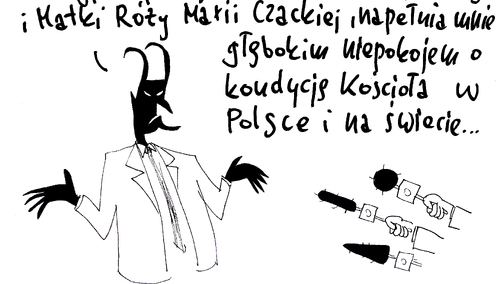 i Matki Róży Marii Czackiej napełnia mnie
głębokim niepokojem o
kondycję Kościoła w
Polsce i na świecie...